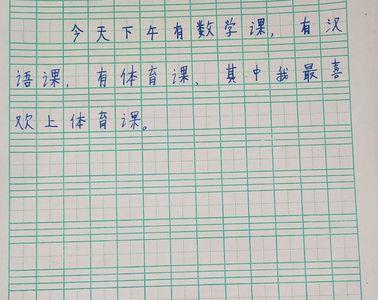 今天下午有数学课，有汉
语课，有体育课，其中我最喜
欢上体育课。